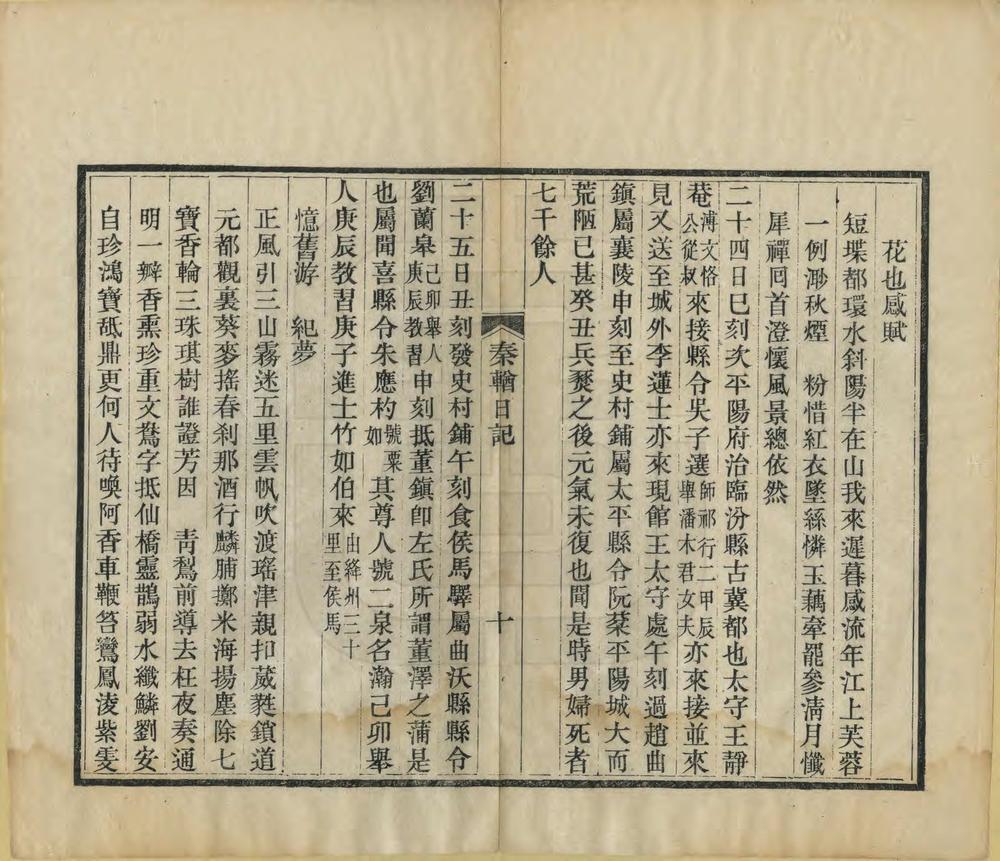 花也感賦
短堞都環水斜陽半在山我來遲暮感流年江上芙蓉
一例渺秋煙　粉惜紅衣墜絲憐玉藕牽罷參淸月懺
犀禪囘首澄懷風景總依然
二十四日巳刻次平陽府治臨汾縣古冀都也太守王靜
菴溥文恪公從叔來接縣令吳子選師祁行二甲辰舉潘木君女夫亦來接並來
見又送至城外李蓮士亦來現館王太守處午刻過趙曲
鎮屬襄陵申刻至史村鋪屬太平縣令阮棻平陽城大而
荒陋已甚癸丑兵燹之後元氣未復也聞是時男婦死者
七千餘人
秦輶日記　十
二十五日丑刻發史村鋪午刻食侯馬驛屬曲沃縣縣令
劉蘭皋己卯舉人庚辰教習申刻抵董鎮卽左氏所謂董澤之蒲是
也屬聞喜縣令朱應杓號粟如其尊人號二泉名瀚己卯舉
人庚辰教習庚子進士竹如伯來由絳州三十里至侯馬
憶舊游　紀夢
正風引三山霧迷五里雲帆吹渡瑤津親扣葳蕤鎖道
元都觀裏葵麥搖春刹那酒行麟脯擲米海揚塵除七
寶香輪三珠琪樹誰證芳因　靑鸑前導去枉夜奏通
明一瓣香熏珍重文鴦字抵仙橋靈鵲弱水纖鱗劉安
自珍鴻寶砥鼎更何人待喚阿香車鞭笞鸞鳳淩紫雯